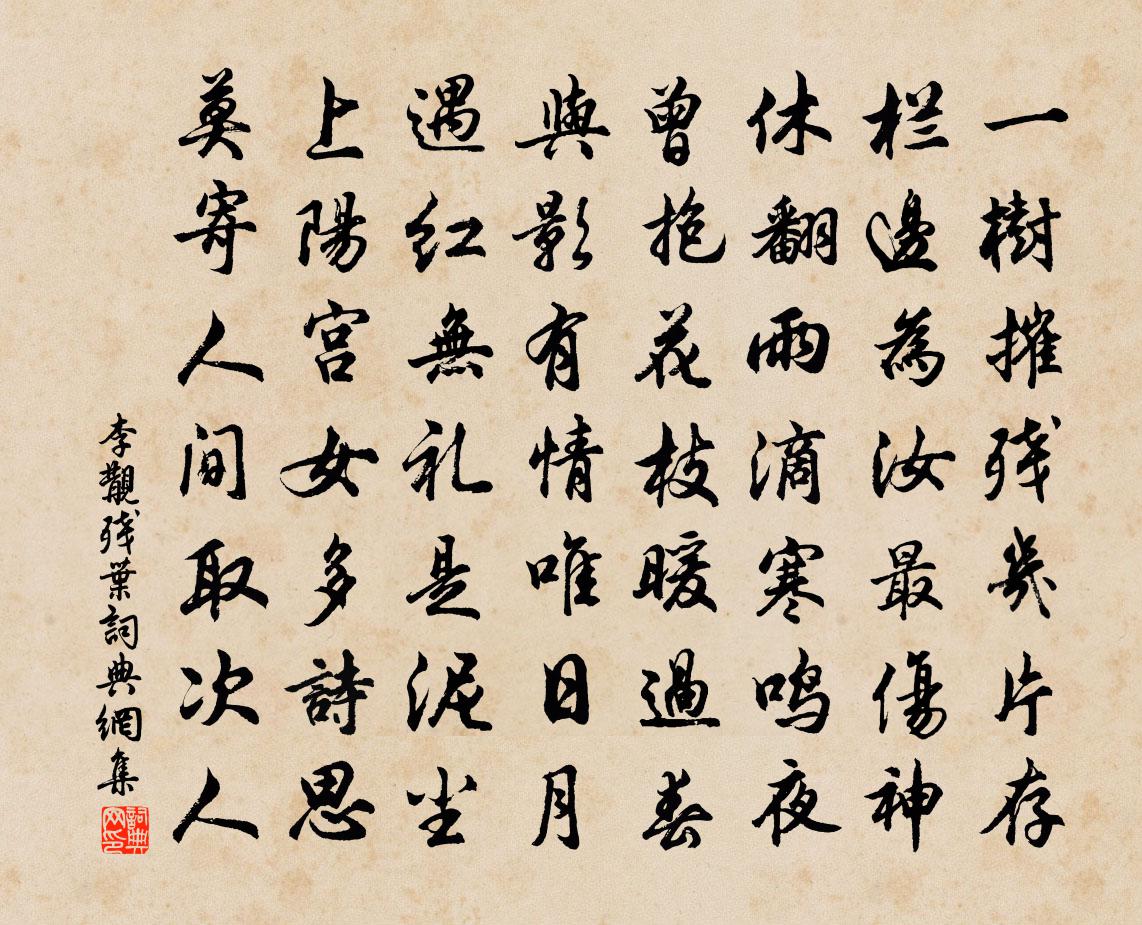 一樹摧残幾片存
栏邊為汝最傷神
休翻雨滴寒鸣夜
曾抱花枝暖過春
與影有情唯日月
遇红無礼是泥尘
上陽宫女多詩思
莫寄人间取次人
李觀残葉詞典網集
詞典
网印